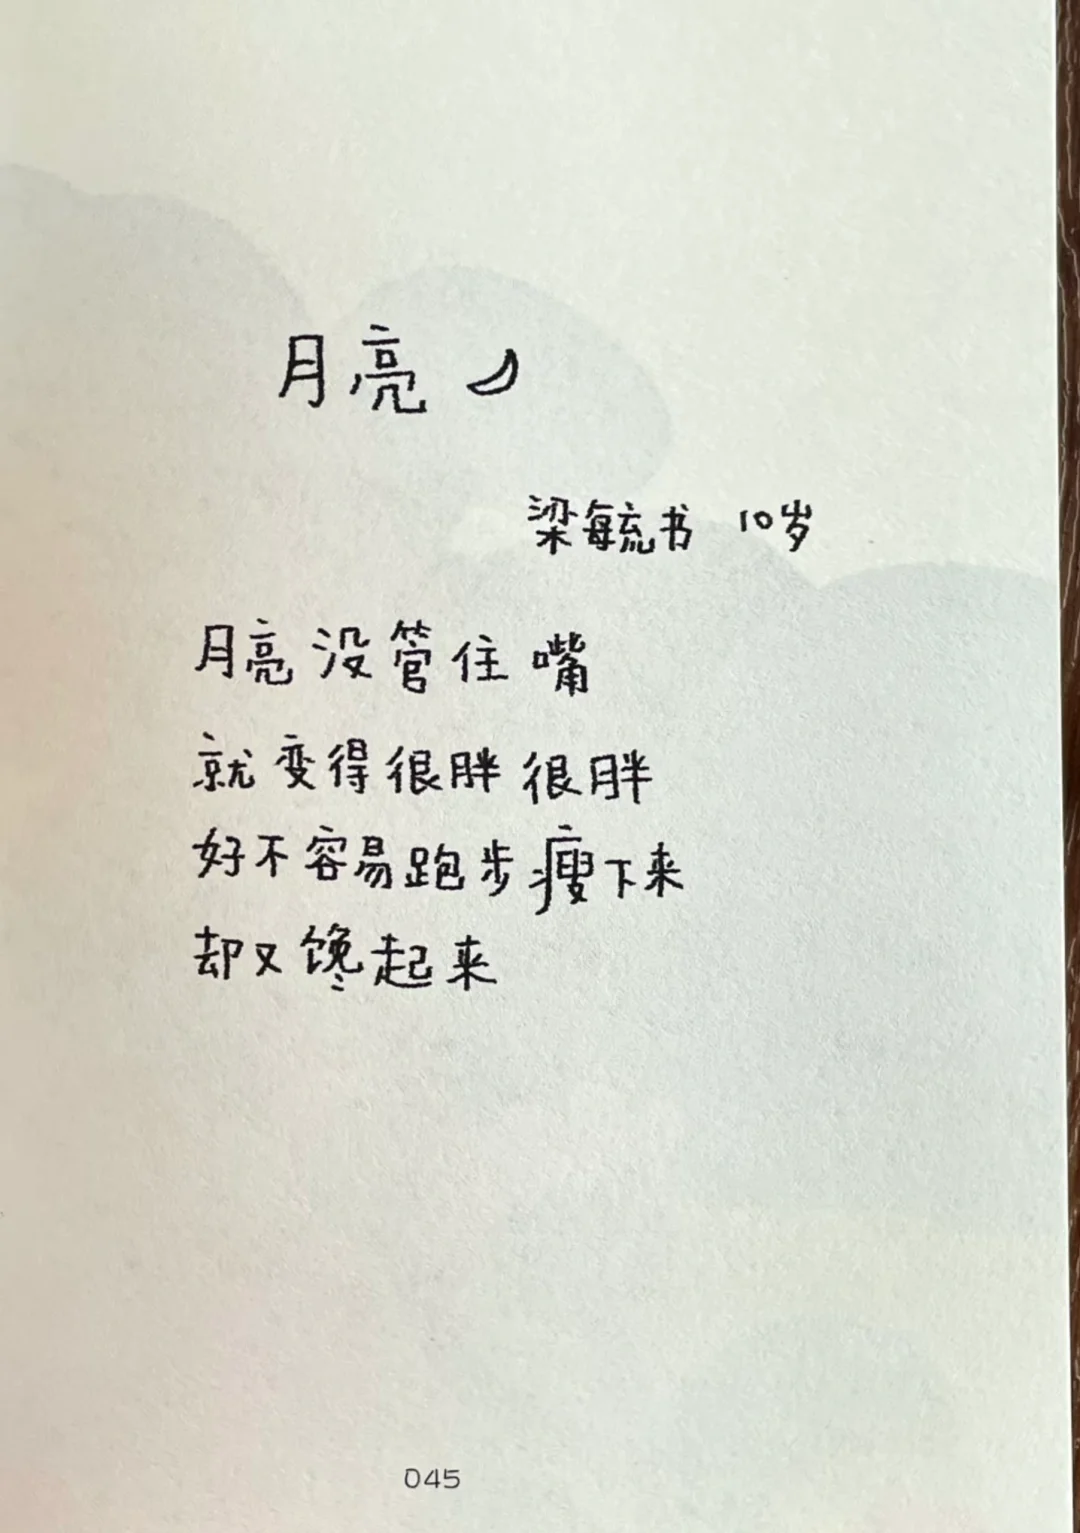 月亮
梁毓书 10岁
月亮没管住嘴
就变得很胖很胖
好不容易跑步瘦下来
却又馋起来
045